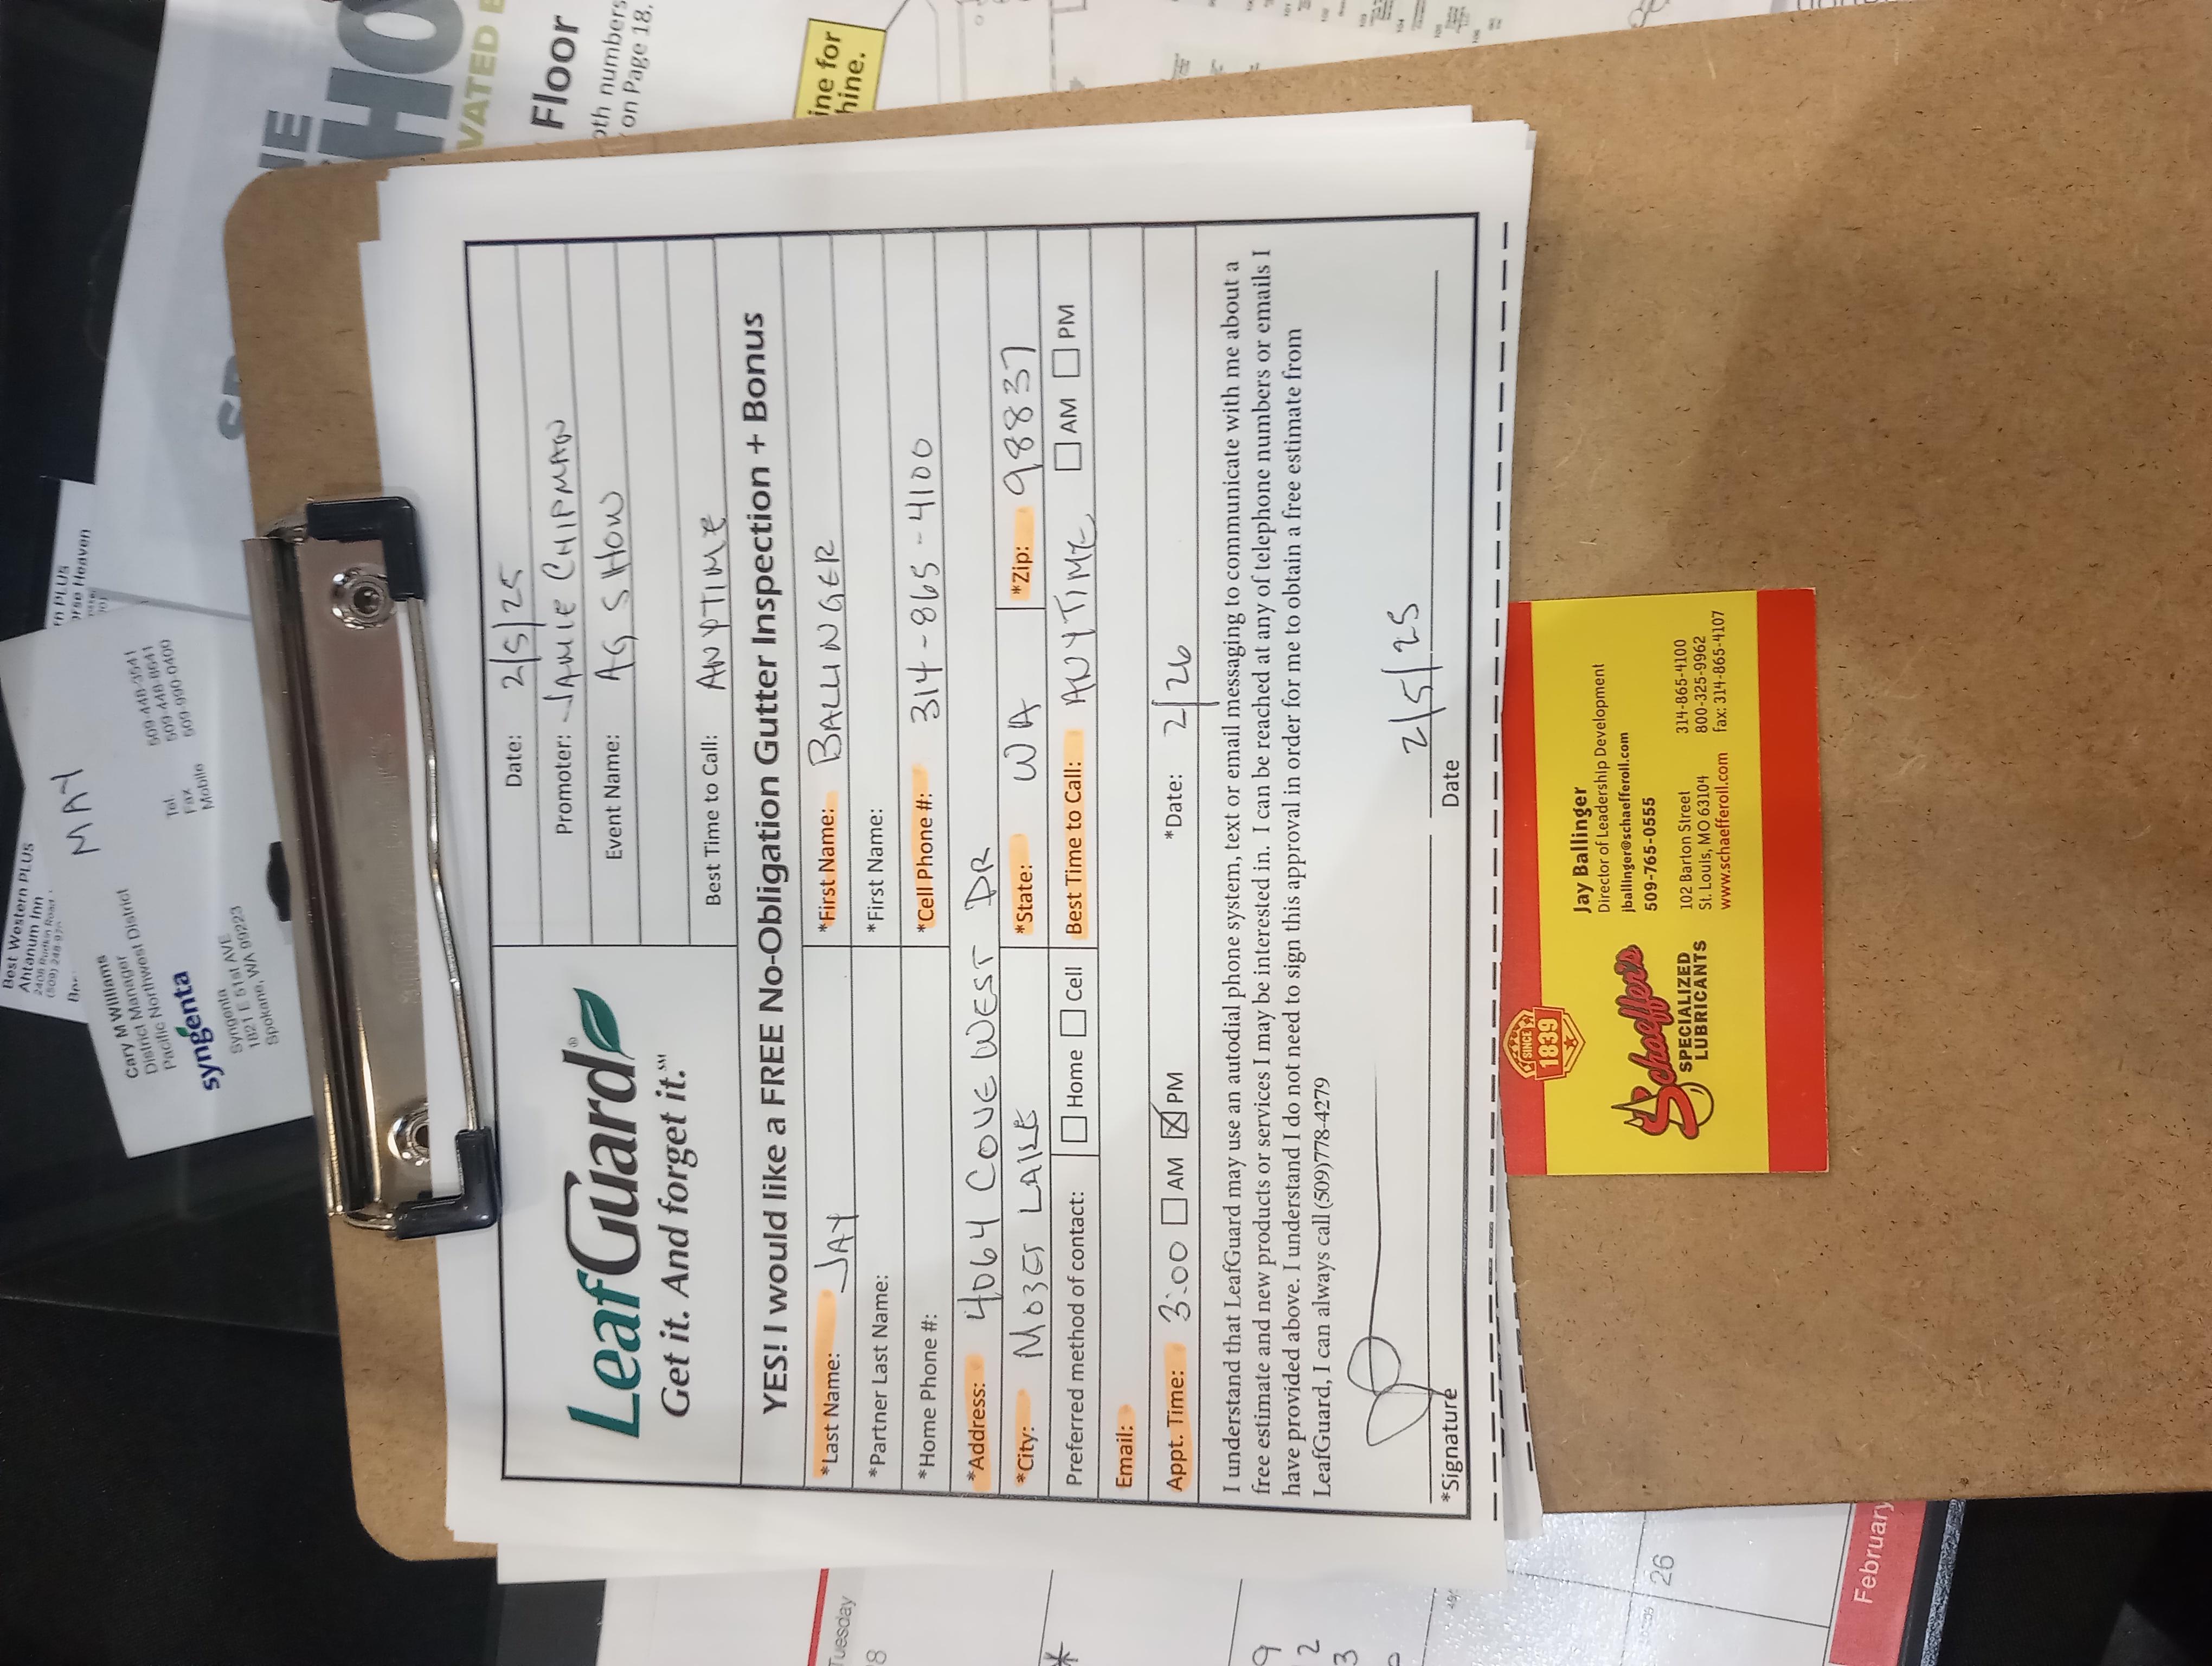 Best Western PLUS
Ahtanum Inn
2408 Rudkin Road
(509) 248-97
rn PLUS
orse Heaven
MAY
Cary M Williams
District Manager
Pacific Northwest District
syngenta
Syngenta
1821 E 51st AVE
Spokane, WA 99223
Tel. 509-448-3541
Fax 509-448-8641
Mobile 509-990-0400
NE
HO
VATED
Floor
oth numbers
on Page 18.
ine for
hine.
LeafGuard®
Get it. And forget it.℠
Date: 2/5/25
Promoter: JAMIE CHIPMAN
Event Name: AG SHOW
Best Time to Call: ANYTIME
YES! I would like a FREE No-Obligation Gutter Inspection + Bonus
*Last Name: JAY *First Name: BALLINGER
*Partner Last Name: *First Name:
*Home Phone #: *Cell Phone #: 314-865-4100
*Address: 4064 COVE WEST DR
*City: MOSES LAKE *State: WA *Zip: 98837
Preferred method of contact: Home Cell Best Time to Call: ANYTIME AM PM
Email:
Appt. Time: 3:00 AM X PM *Date: 2/26
I understand that LeafGuard may use an autodial phone system, text or email messaging to communicate with me about a
free estimate and new products or services I may be interested in. I can be reached at any of telephone numbers or emails I
have provided above. I understand I do not need to sign this approval in order for me to obtain a free estimate from
LeafGuard, I can always call (509)778-4279
2/5/25
*Signature Date
Tuesday
26
February
SINCE
1839
Schaeffer's
SPECIALIZED
LUBRICANTS
Jay Ballinger
Director of Leadership Development
jballinger@schaefferoil.com
509-765-0555
102 Barton Street 314-865-4100
St. Louis, MO 63104 800-325-9962
www.schaefferoil.com fax: 314-865-4107